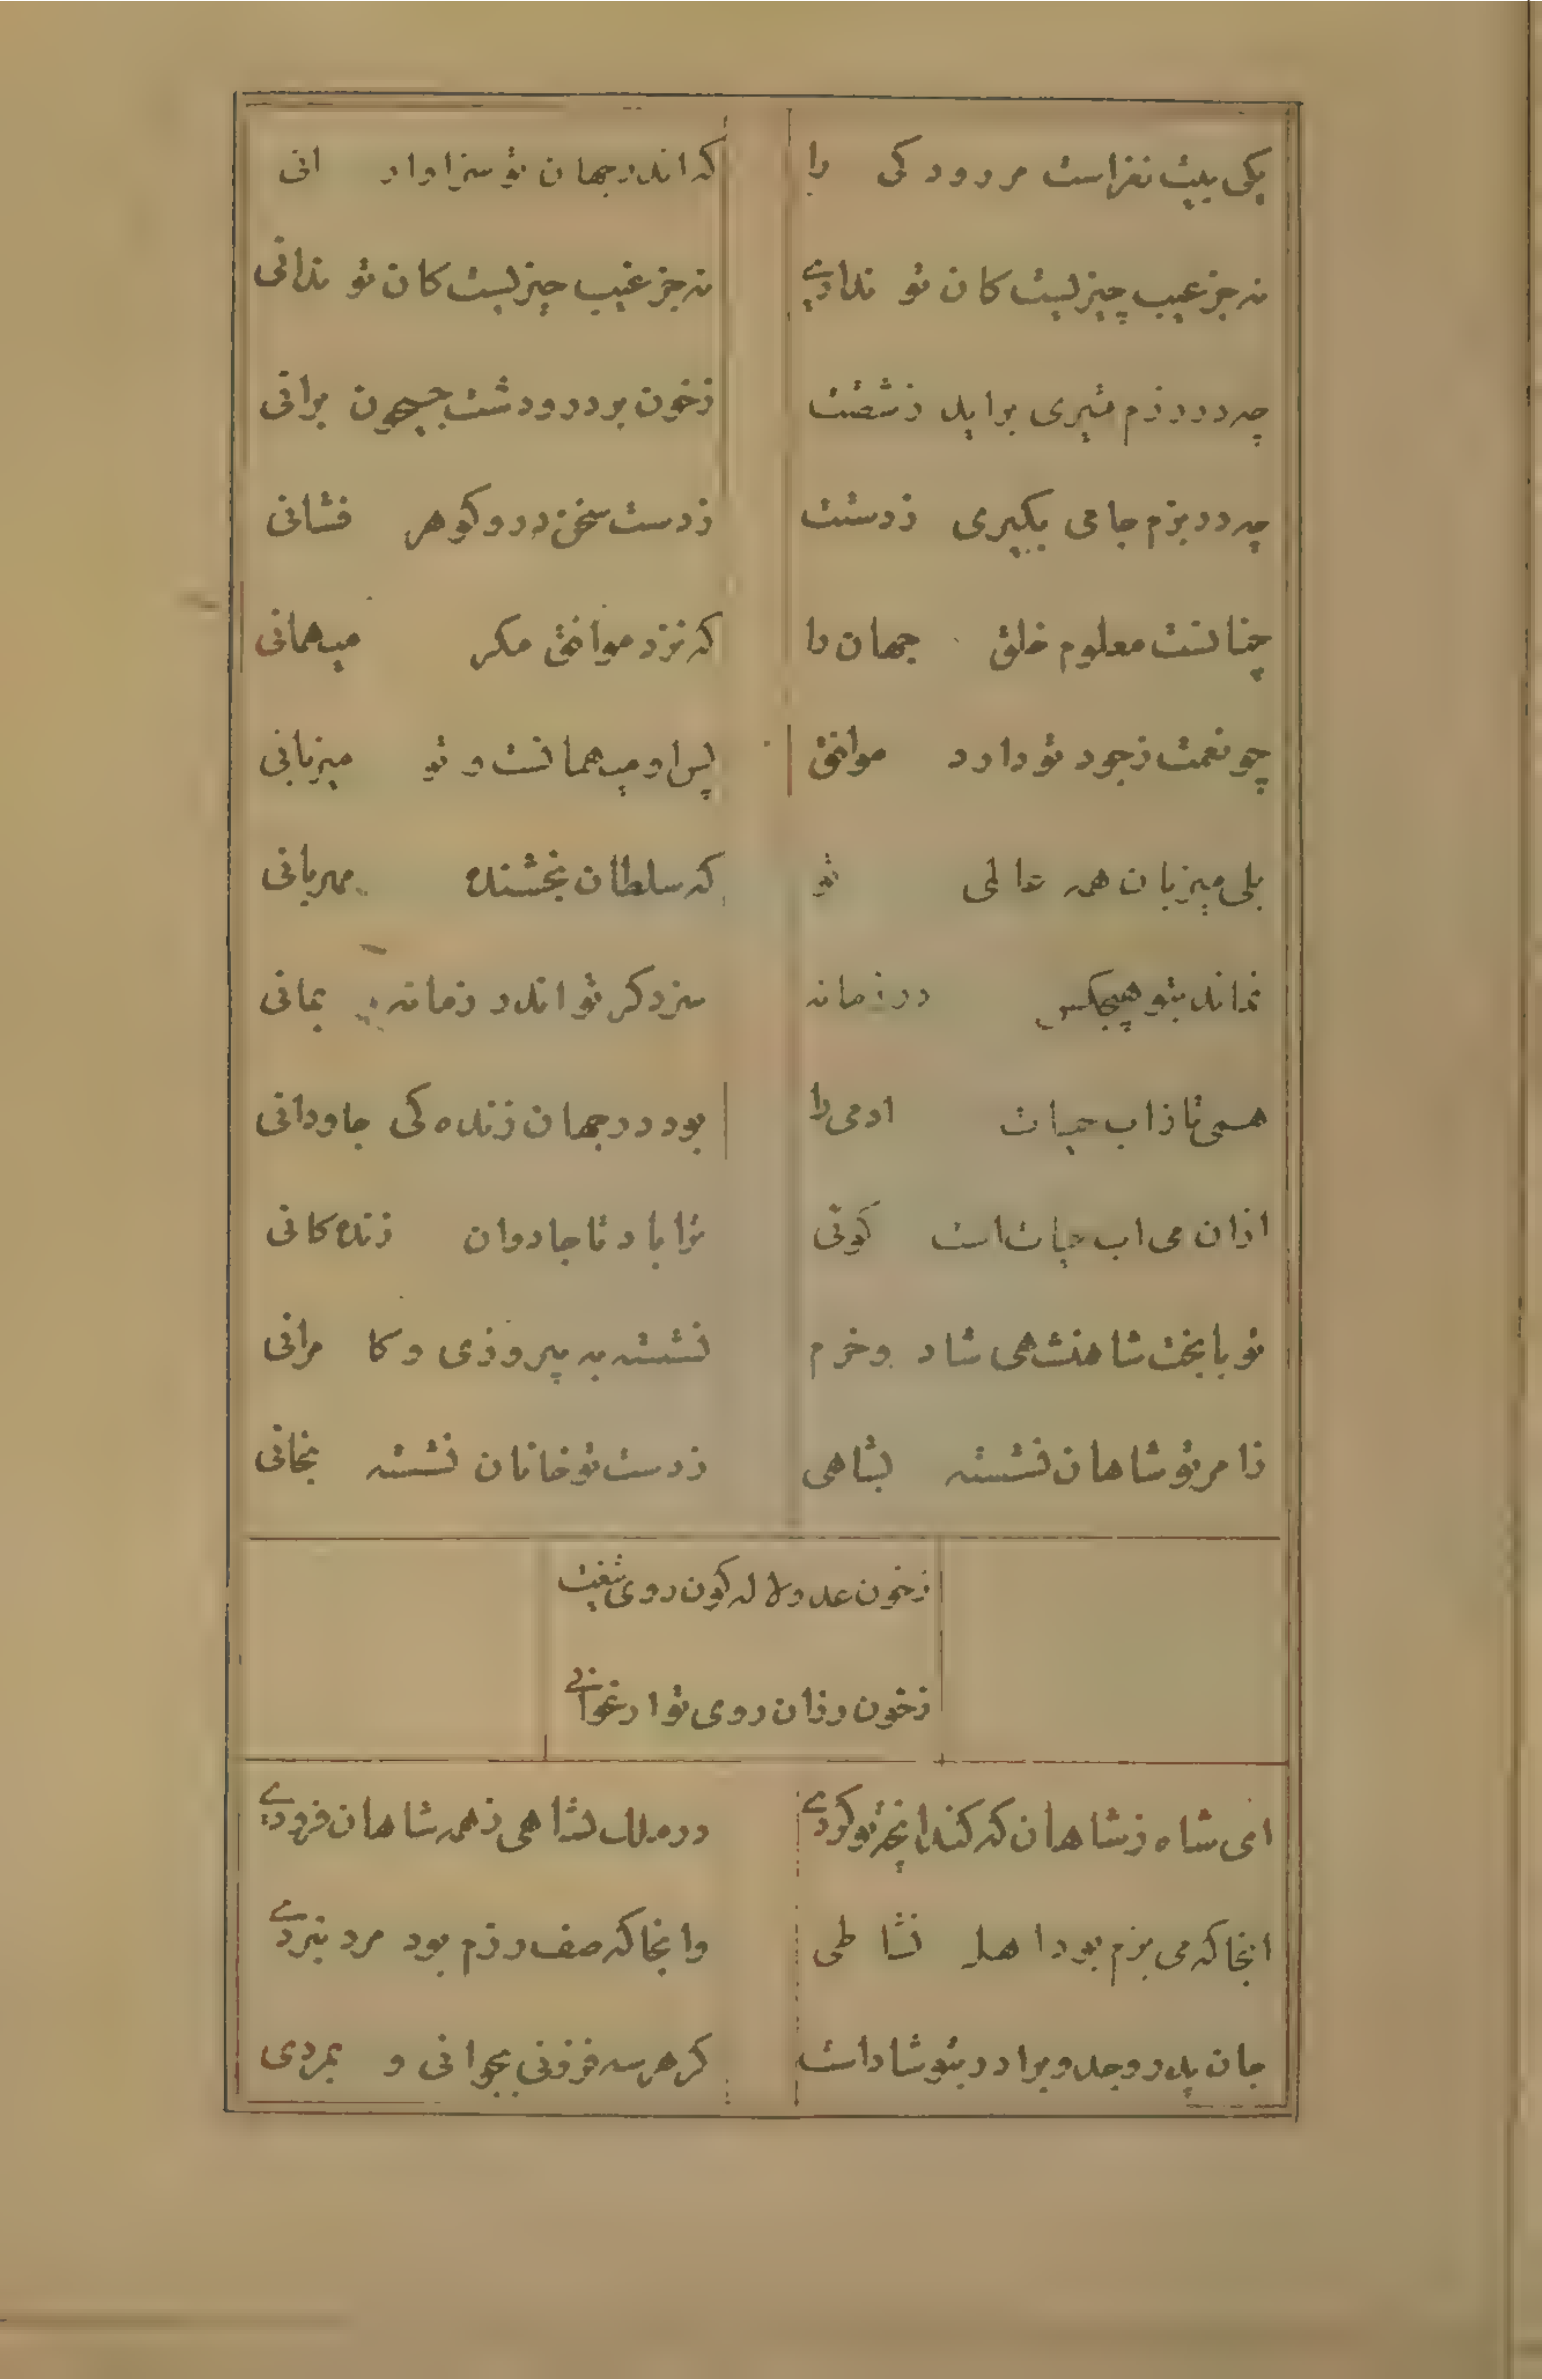 یکی بیت نغزاست مر رودکی را
که اندر جهان تو سزاوار انی
نه جز عیب چیزیست کان تو نداری
نه جز غیب چیزیست کان تو ندانی
چه در رزم تیری براید ز شصتت
ز خون بر در و دشت جیحون برانی
چه در بزم جامی بگیری ز دستت
ز دست سخن در و کوهر فشانی
چنانست معلوم خلق جهان را
که نزد موافق مکر میهمانی
چو نعمت ز جود تو دارد موافق
پس او میهمانست و تو میزبانی
بلی میزبان همه عالمی تو
که سلطان بخشنده مهربانی
نماند بتو هیچکس در زمانه
سزد کر تو اندر زمانه بمانی
همی تا ز اب حیات ادمی را
بود در جهان زنده کی جاودانی
ازان می اب حیات است کوئی
ترا باد تا جادوان زنده کانی
تو با بخت شاهنشهی شاد و خرم
نشسته به پیروزی و کا مرانی
زا مر تو شاهان نشسته بشاهی
ز دست تو خانان نشسته بخانی
ز خون عدو لاله کون روی تیغت
ز خون رزان روی تو ارغوانی
ای شاه ز شاهان که کند انچه تو کردی
در ملک بشاهی ز همه شاهان فردی
انجا که می بزم بود اهل نشا طی
وانجا که صف رزم بود مرد نبردی
جان پدر و جد و برادر بتو شاداست
کز هر سه فزونی بجوانی و بمردی